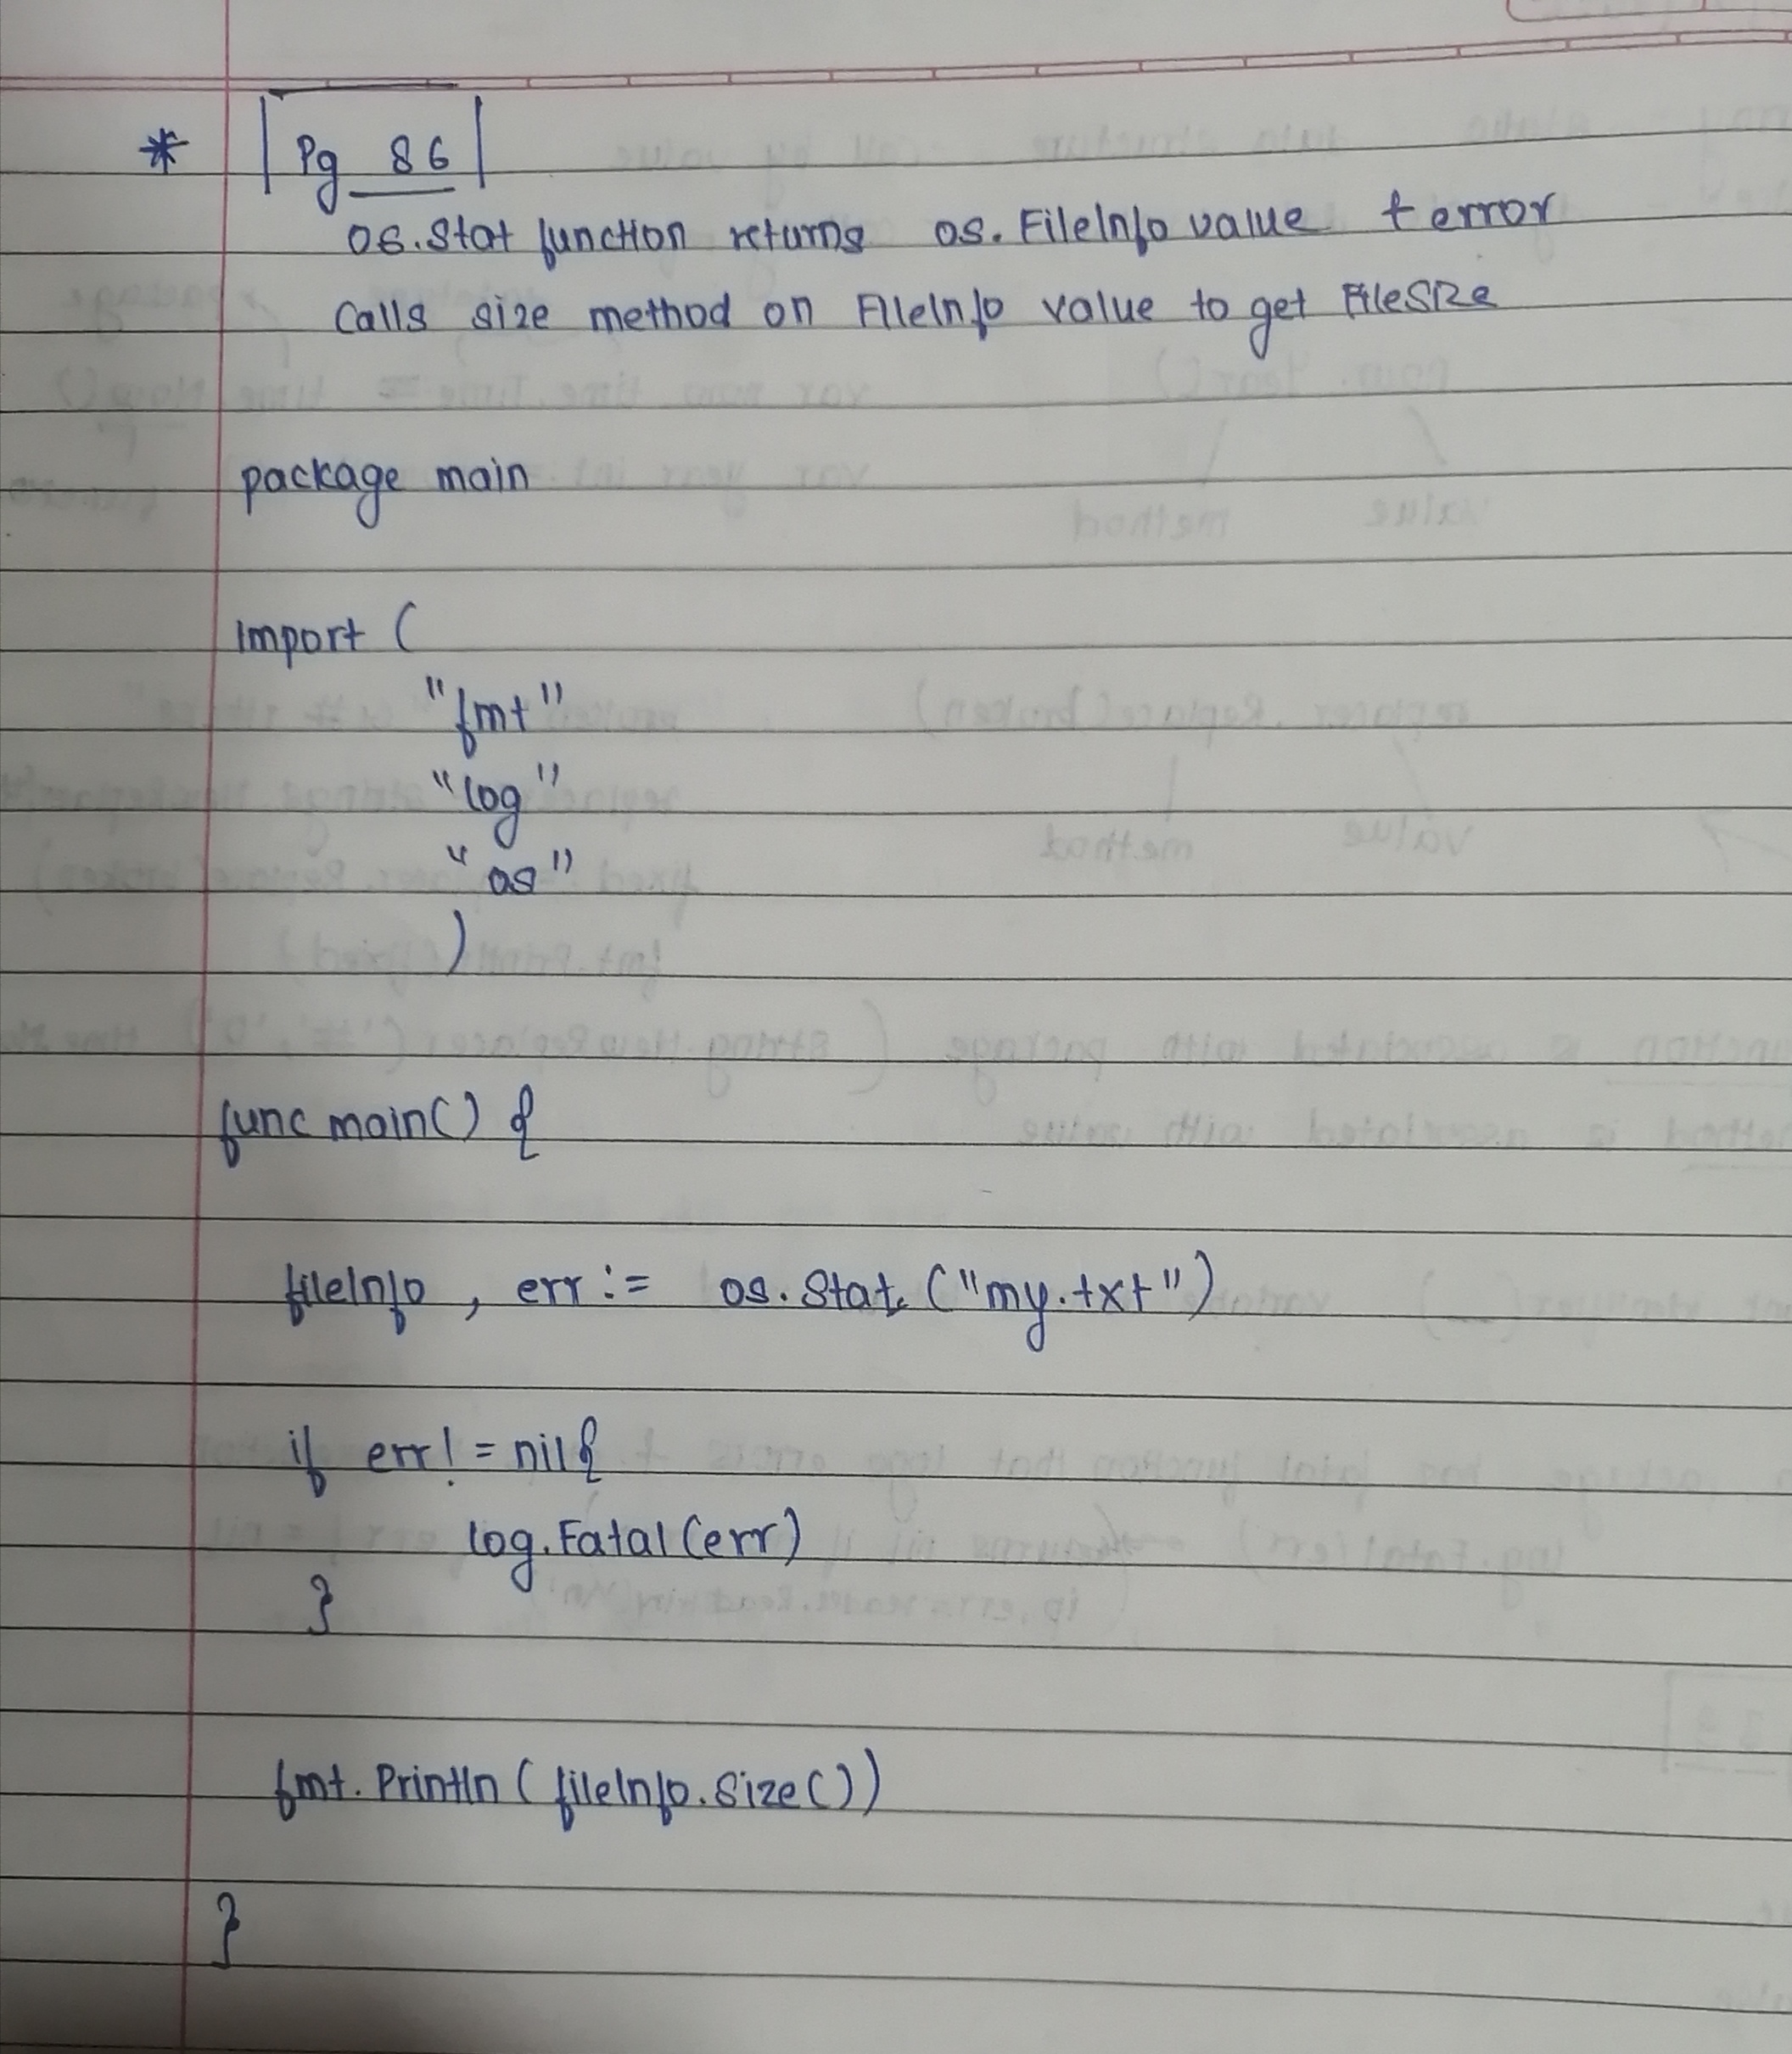 * Pg 86
os.Stat function returns os.FileInfo value + error
Calls size method on FileInfo value to get FileSize
package main
import (
"fmt"
"log"
"os"
)
func main() {
fileInfo, err := os.Stat ("my.txt")
if err != nil {
log.Fatal(err)
}
fmt.Println(fileInfo.Size())
}